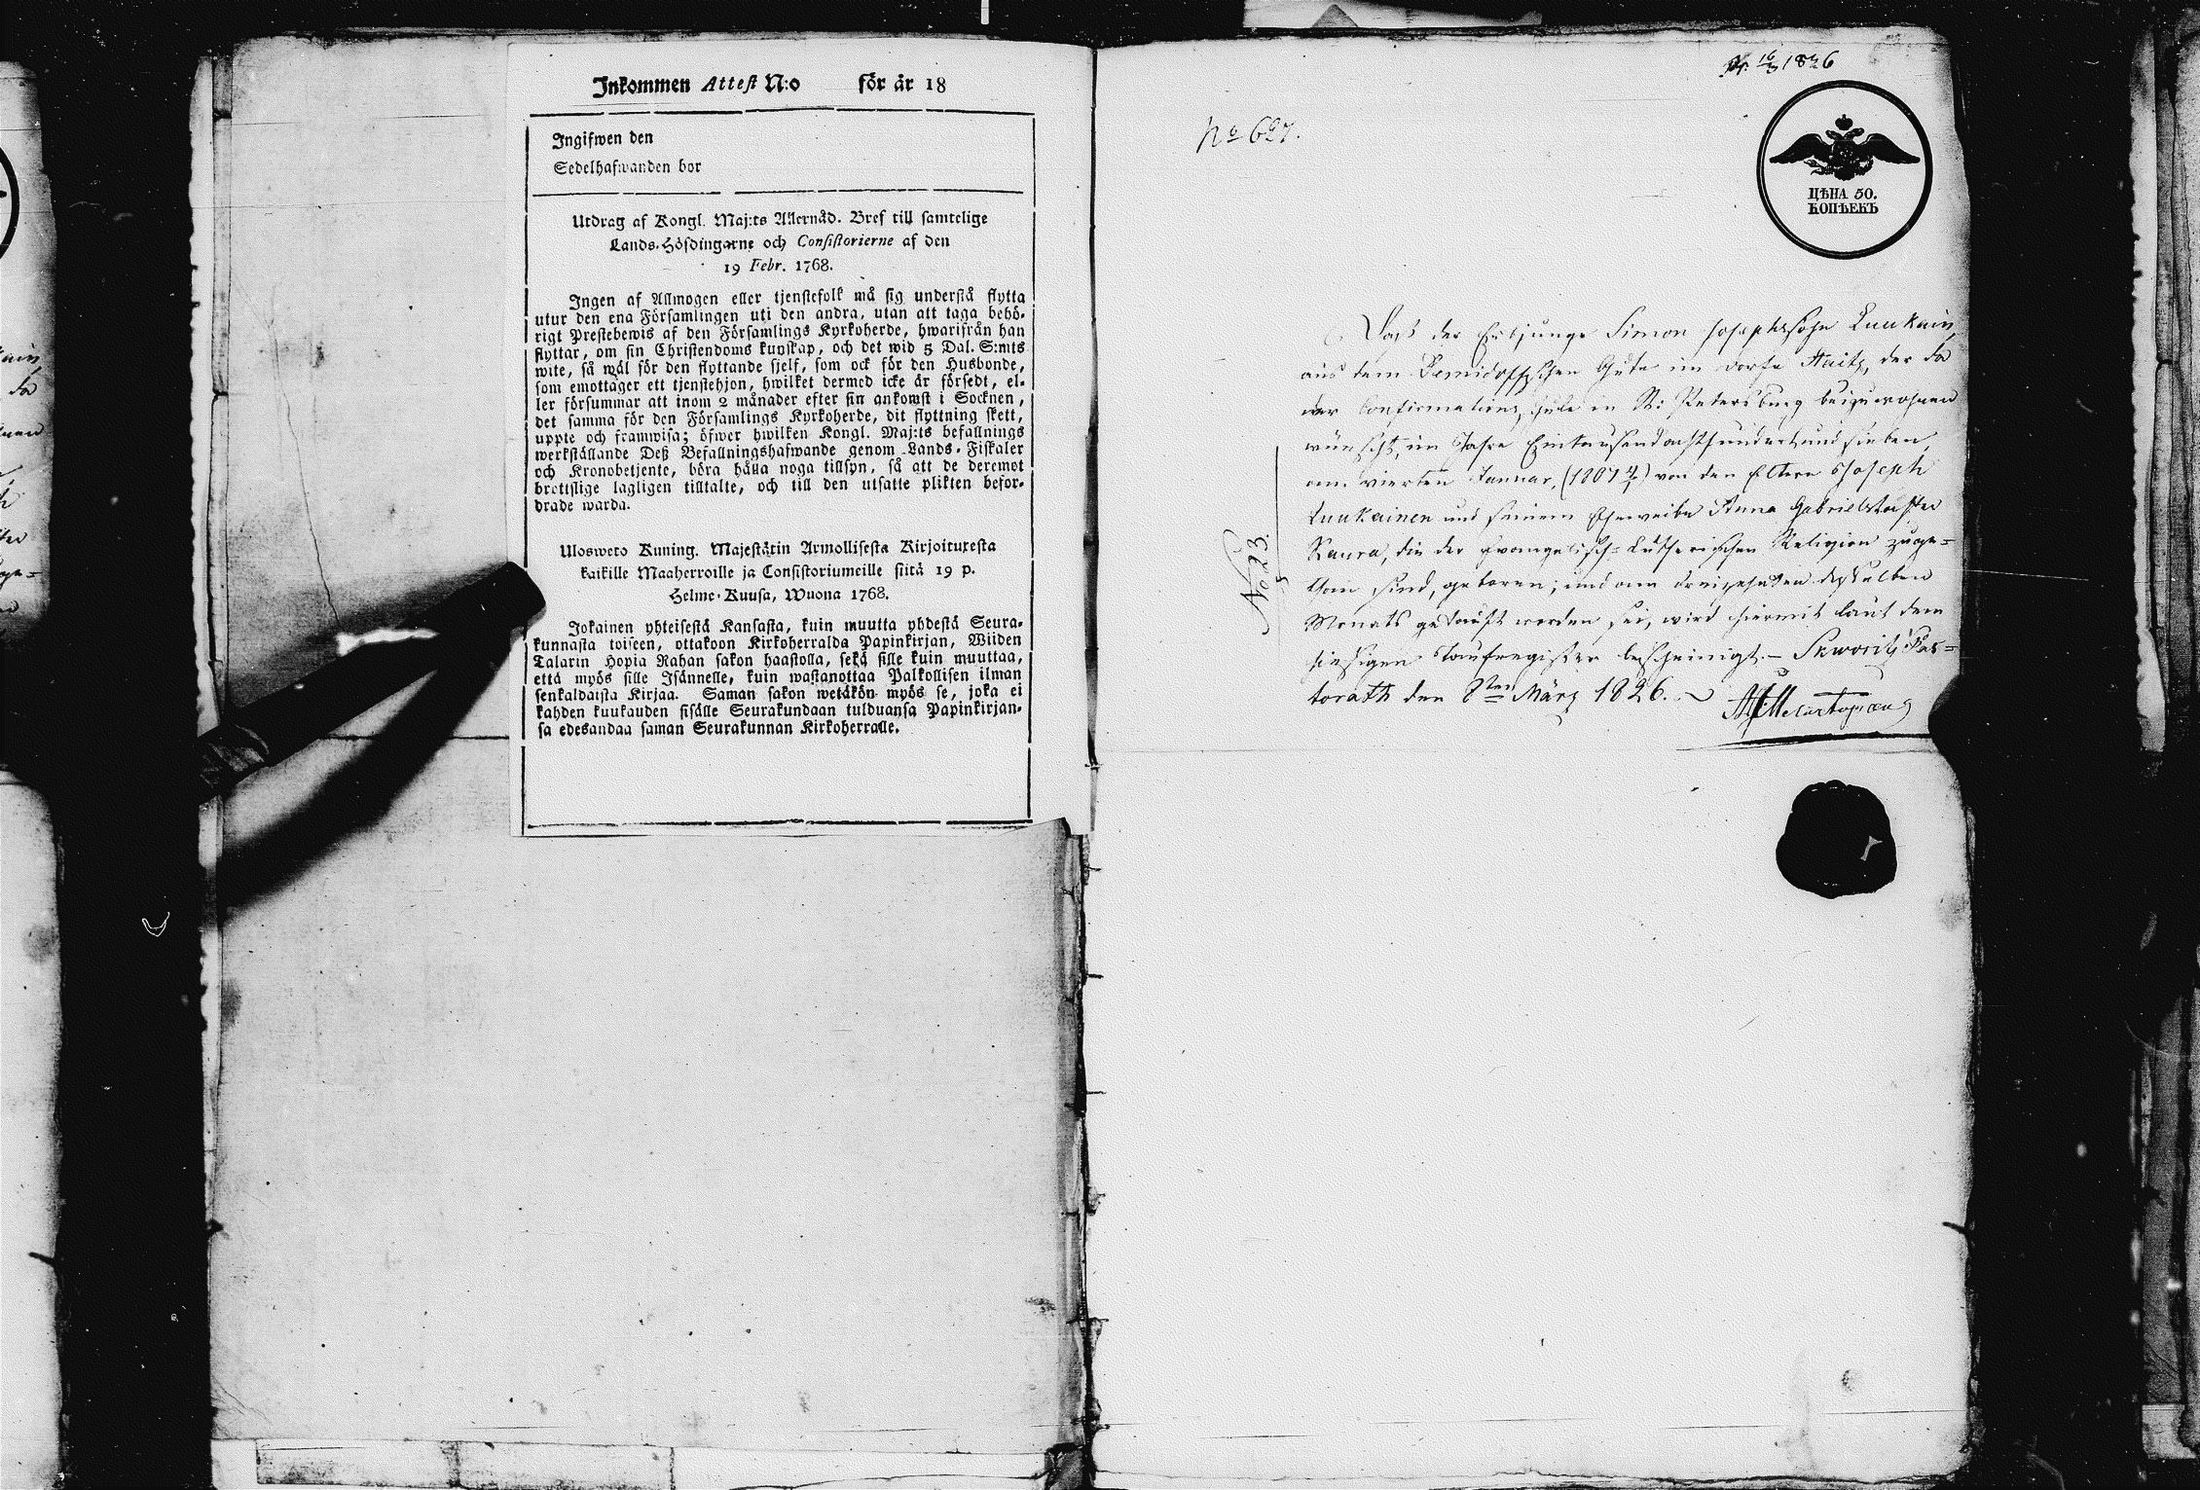 Inkommen Attest N:o för år 18
Ingifwen den
Sedelhafwanden bor
Utdrag af Kongl. Maj:ts Allernåd. Bref till samtelige
Lands-Höfdingarne och Consistorierne af den
19 Febr. 1768.
Ingen af Allmogen eller tjenstefolk må sig understå flytta
utur den ena Församlingen uti den andra, utan att taga behö-
rigt Prestebewis af den Församlings Kyrkoherde, hwarifrån han
flyttar, om sin Christendoms kunskap, och det wid 5 Dal. S:mts
wite, så wäl för den flyttande sjelf, som ock för den Husbonde,
som emottager ett tjenstehjon, hwilket dermed icke är försedt, el-
ler försummar att inom 2 månader efter sin ankomst i Socknen,
det samma för den Församlings Kyrkoherde, dit flyttning skett,
uppte och framwisa; öfwer hwilken Kongl. Maj:ts befallnings
werkställande Deß Befallningshafwande genom Lands-Fiskaler
och Kronobetjente, böra hålla noga tillsyn, så att de deremot
brottslige lagligen tilltalte, och till den utsatte plikten befor-
drade warda.
Ulosweto Kuning. Majestätin Armollisesta Kirjoituxesta
kaikille Maaherroille ja Consistoriumeille siitä 19 p.
Helme-Kuusa, Wuona 1768.
Jokainen yhteisestä Kansasta, kuin muutta yhdestä Seura-
kunnasta toiseen, ottakoon Kirkoherralda Papinkirjan, Wiiden
Talarin Hopia Rahan sakon haastolla, sekä sille kuin muuttaa,
että myös sille Isännelle, kuin wastanottaa Palkollisen ilman
senkaldaista Kirjaa. Saman sakon wetäkön myös se, joka ei
kahden kuukauden sisälle Seurakundaan tulduansa Papinkirjan-
sa edesandaa saman Seurakunnan Kirkoherralle.
16/3 1826
No 627.
ЦѢНА 50.
КОПѢЕКЪ
Daß der Erbjunge Simon Josephssohn Luukain,
aus dem Demidoffschen Gute im Dorfe Haitz, der da
der Confirmations Schule in St: Petersburg beizuwohnen
wünscht, im Jahre Eintausendachthundertundsieben,
am vierten Januar, (1807 4/1) von den Eltern Joseph
Luukainen und seinem Eheweibe Anna Gabrielstochter
Raura, die der Evangelisch-Lutherischen Religion zuge=
than sind, geboren; und am dreizehnten desselben
Monats getauft worden sei, wird hiermit laut dem
hiesigen Taufregister bescheinigt. — Skworitz Pas=
torath den 8ten März 1826.
No 23.